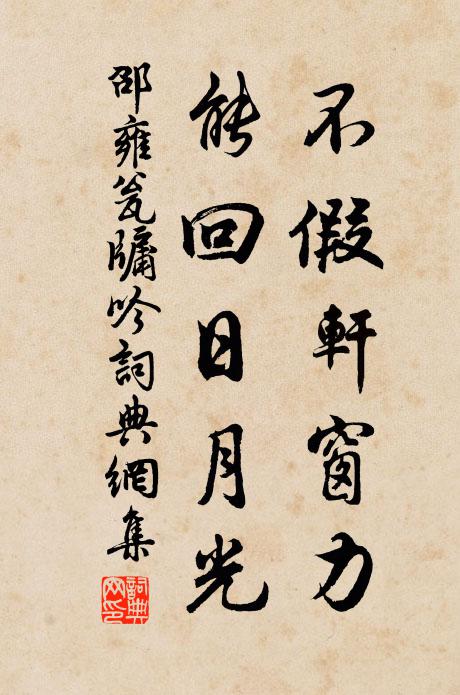 不假軒窗力
能回日月光
邵雍瓮牖吟詞典網集
詞典
网印